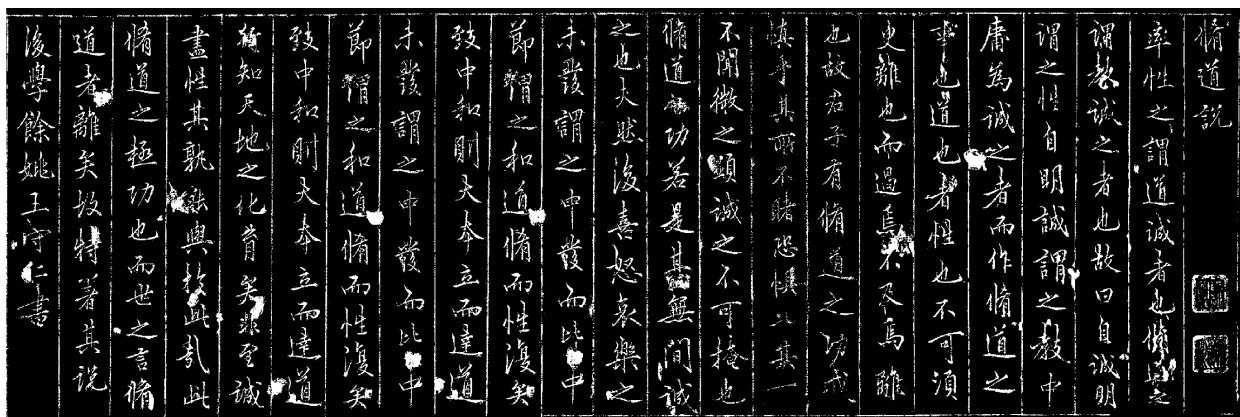 脩道説
率性之謂道誠者也脩道之
謂教誠之者也故曰自誠明
謂之性自明誠謂之教中
庸為誠之者而作脩道之
事也道也者性也不可須
臾離也而過焉不及焉離
也故君子有脩道之功戒
慎乎其所不睹恐懼乎其
不聞微之顯誠之不可掩也
脩道之功若是其無間誠
之也夫然後喜怒哀樂之
未發謂之中發而皆中
節謂之和道脩而性復矣
致中和則大本立而達道
未發謂之中發而皆中
節謂之和道脩而性復矣
致中和則大本立而達道
行知天地之化育矣非至誠
盡性其孰能與於此哉此
脩道之極功也而世之言脩
道者離矣故特著其説
後學餘姚王守仁書